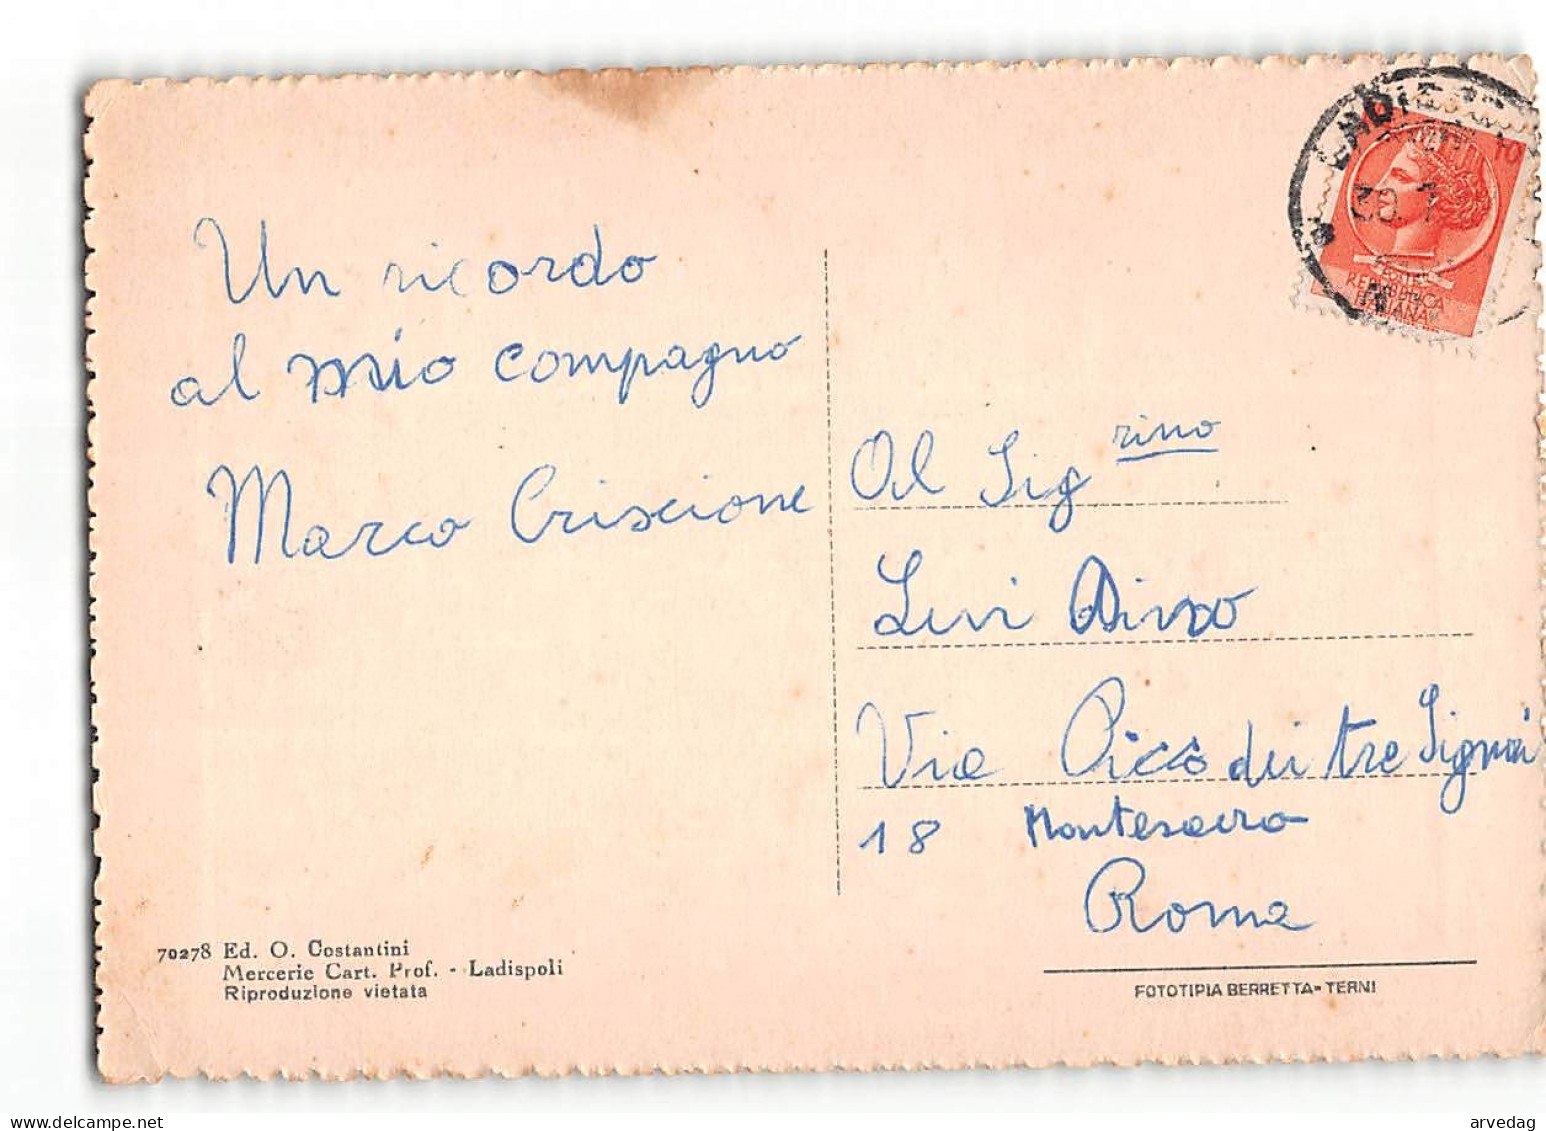 Un ricordo
al mio compagno
Marco Criscione
Al Sig rino
Levi
Via Picco dei tre Signori
18 Montesacro
Roma
10
30. 7
POSTE
REPUBBLICA
ITALIANA
70278 Ed. O. Costantini
Mercerie Cart. Prof. - Ladispoli
Riproduzione vietata
FOTOTIPIA BERRETTA - TERNI
arvedag